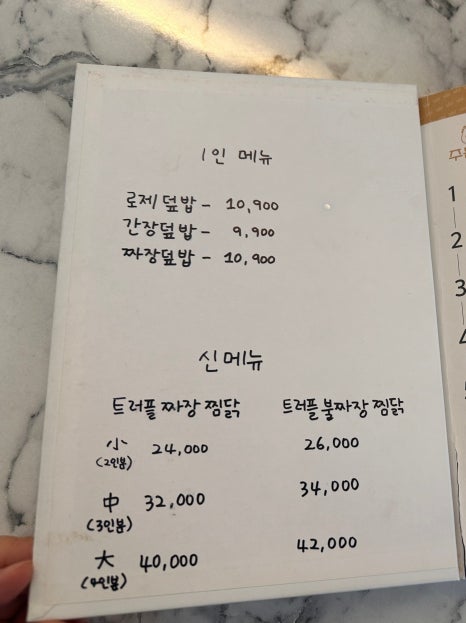 1인 메뉴
로제덮밥 - 10,900
간장덮밥 - 9,900
짜장덮밥 - 10,900
신메뉴
트러플 짜장 찜닭 트러플 불짜장 찜닭
小 24,000 26,000
(2인분)
中 32,000 34,000
(3인분)
大 40,000 42,000
(4인분)
1
2
3